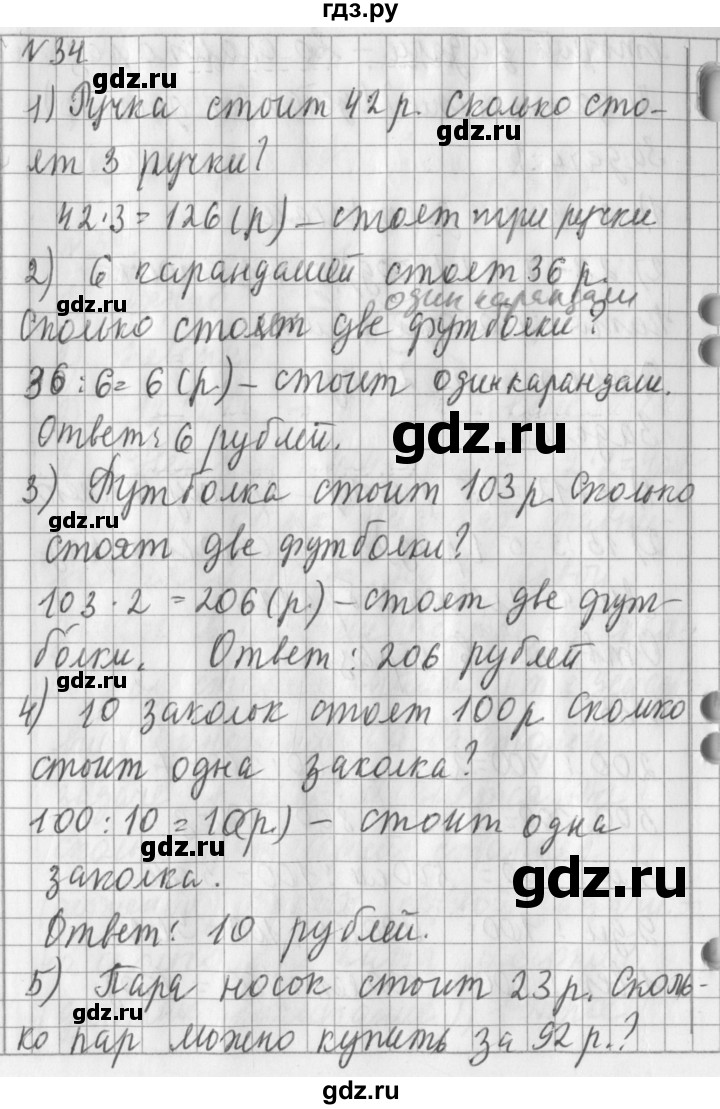 гдз.ру
N 34
gdz.ru
1) Ручка стоит 42 р. Сколько сто-
gdz.ru
ят 3 ручки?
42·3=126 (р) – стоят три ручки
2) 6 карандашей стоят 36 р.
gdz.ru
один карандаш
Сколько стоят две футболки?
36:6=6 (р.) – стоит один карандаш.
Ответ: 6 рублей.
gdz.ru
3) Футболка стоит 103 р. Сколько
gdz.ru
стоят две футболки?
103·2=206 (р.) – стоят две фут-
болки. Ответ: 206 рублей
gdz.ru
4) 10 заколок стоят 100 р. Сколько
стоит одна заколка?
100:10=10 (р.) – стоит одна
gdz.ru
заколка.
gdz.ru
Ответ: 10 рублей.
5) Пара носок стоит 23 р. Сколь-
gdz.ru
ко пар можно купить за 92 р.?
gdz.ru